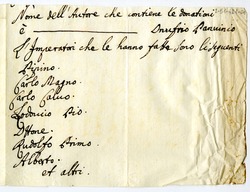 Nome dell'Autore che contiene le donationi
è Onufrio Panuinio
L'Imperatori che le hanno fatte sono li seguenti
Pipino.
Carlo Magno.
Carlo Caluo.
Lodouico Pio.
Ottone.
Rudolfo Primo.
Alberto.
et altri.